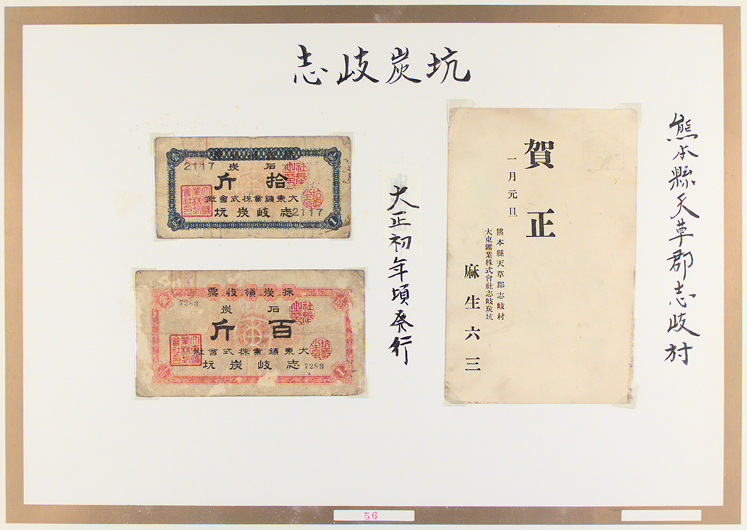 坑炭岐志
熊本縣天草郡志岐村
賀正
一月元旦
熊本縣天草郡志岐村
大東鑛業株式會社志岐炭坑
麻生六三
大正初年頃発行
2117
炭石
斤拾
社會式株業鑛東大
坑炭岐志
2117
票收領炭採
7283
炭石
斤百
社會式株業鑛東大
坑炭岐志
7283
56